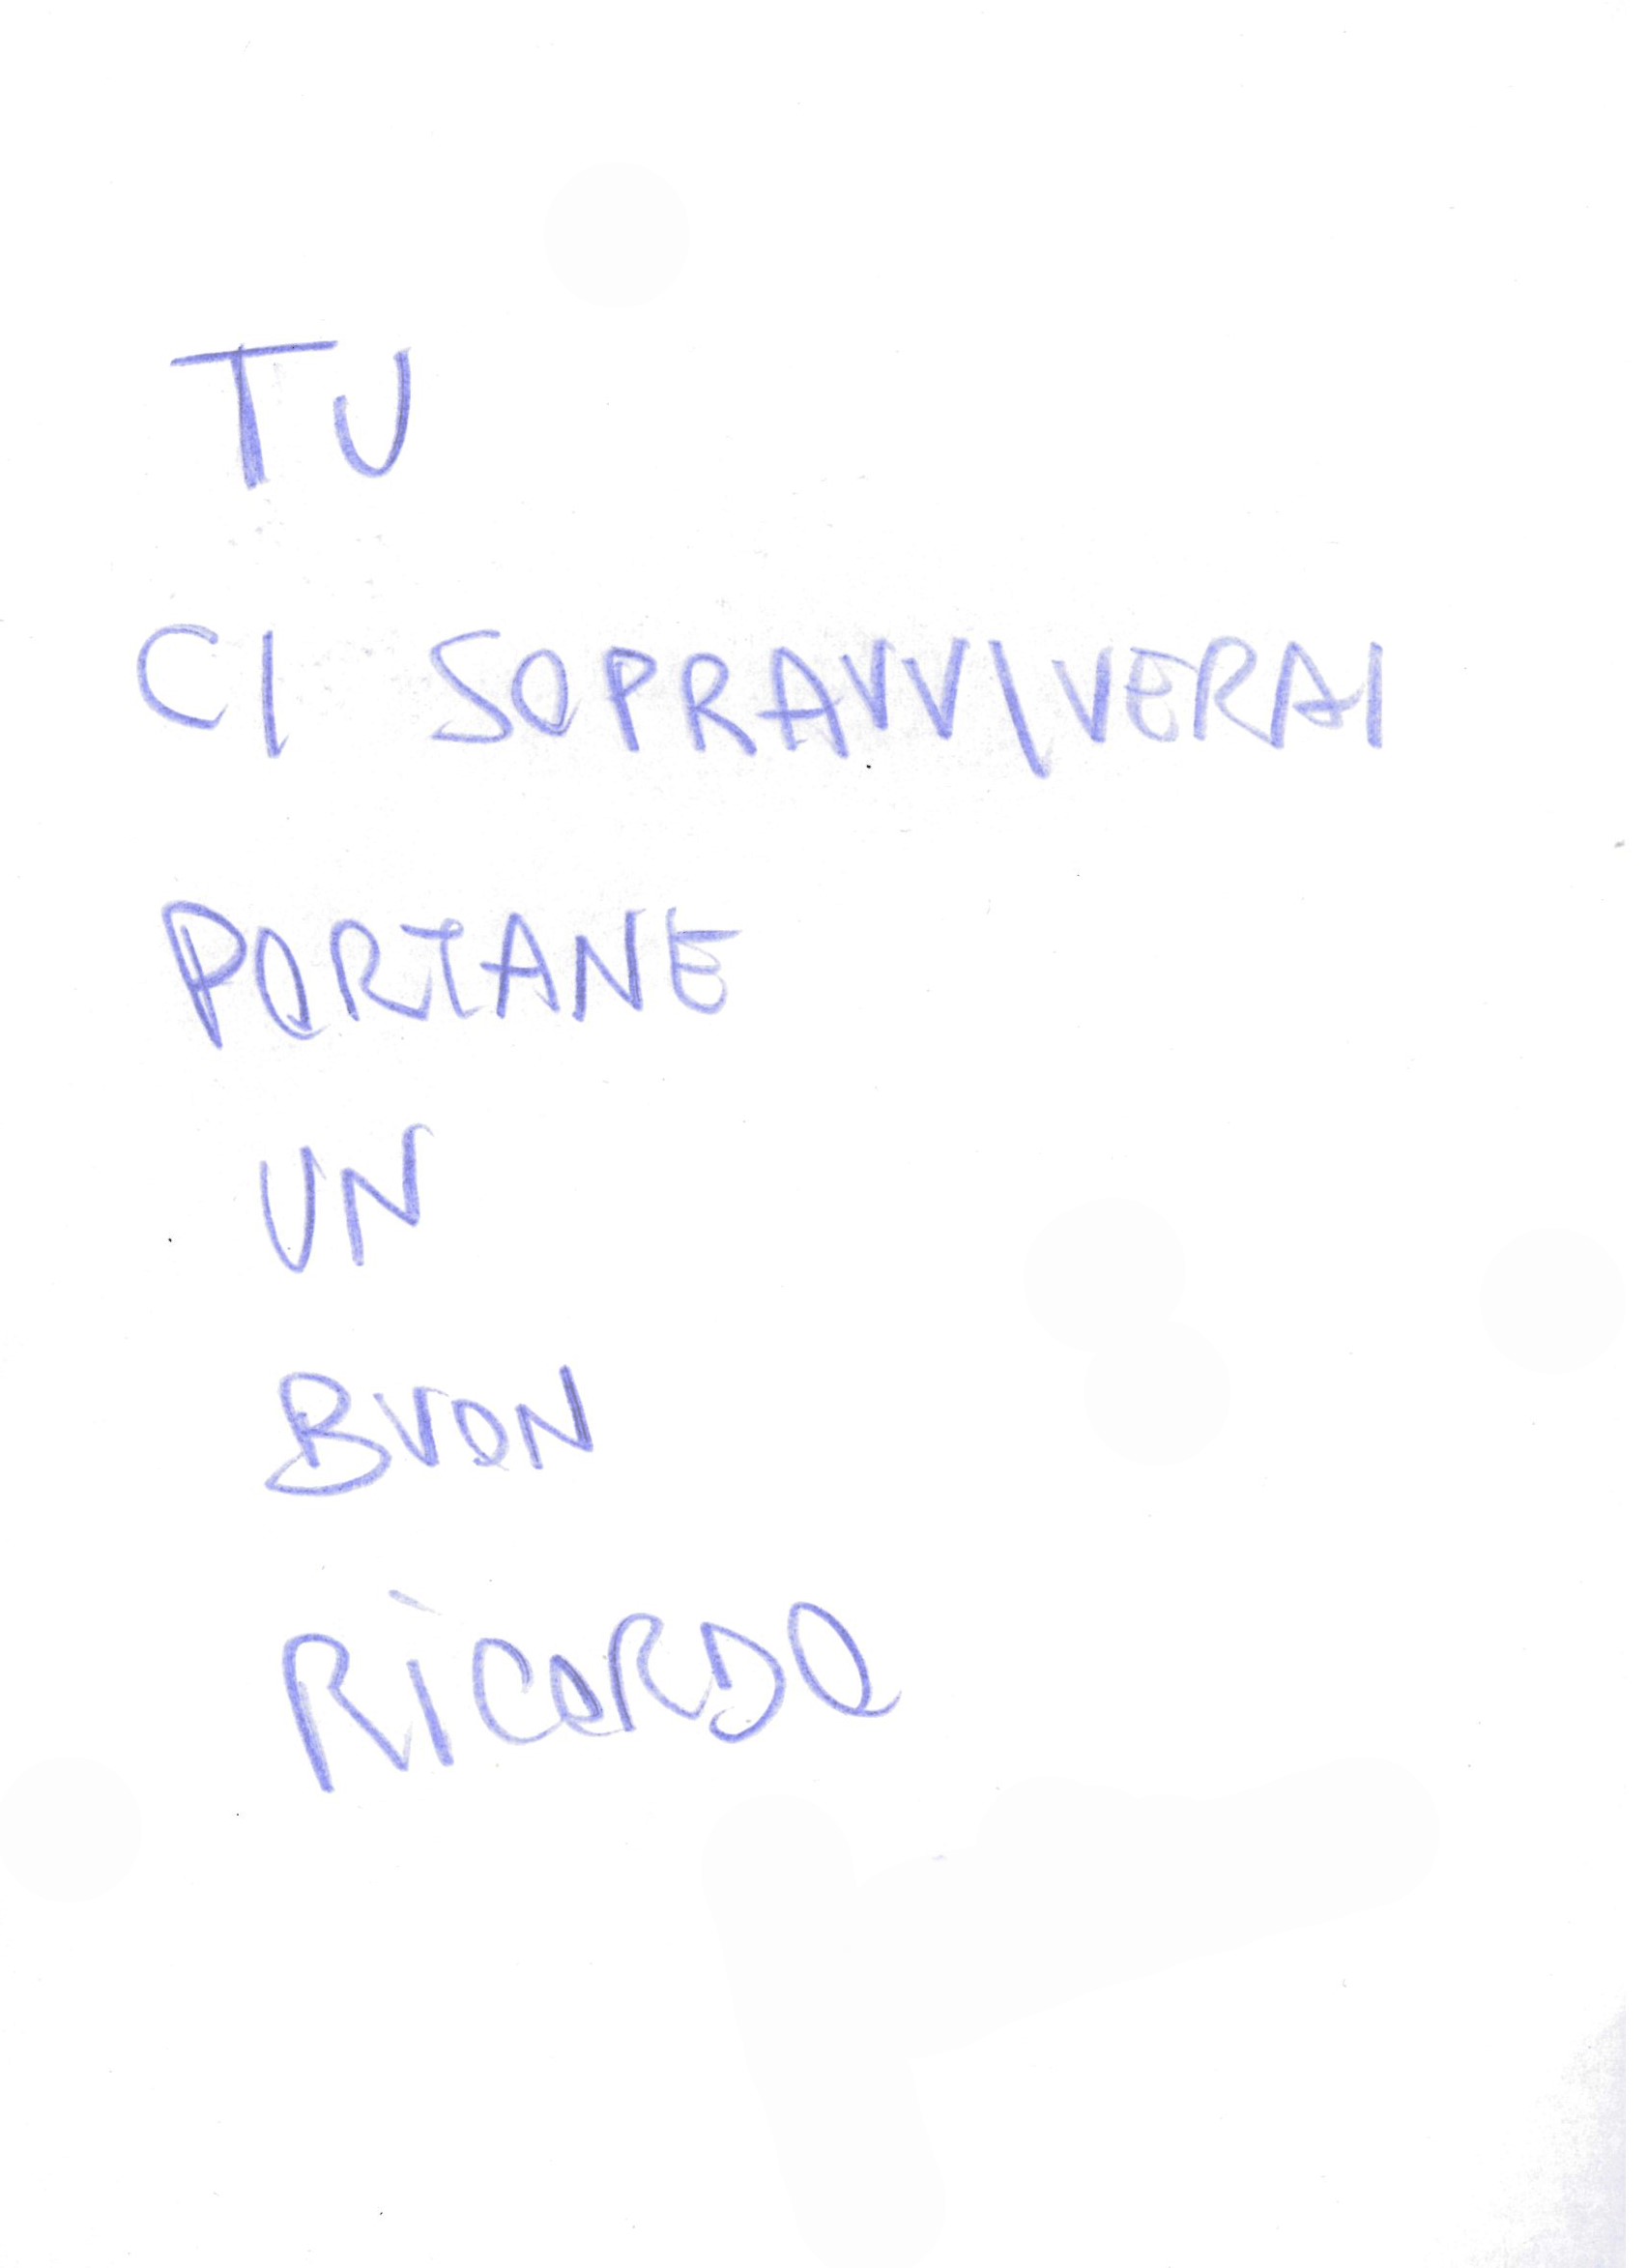 TU
CI SOPRAVVIVERAI
PORTANE
UN
BUON
RICORDO